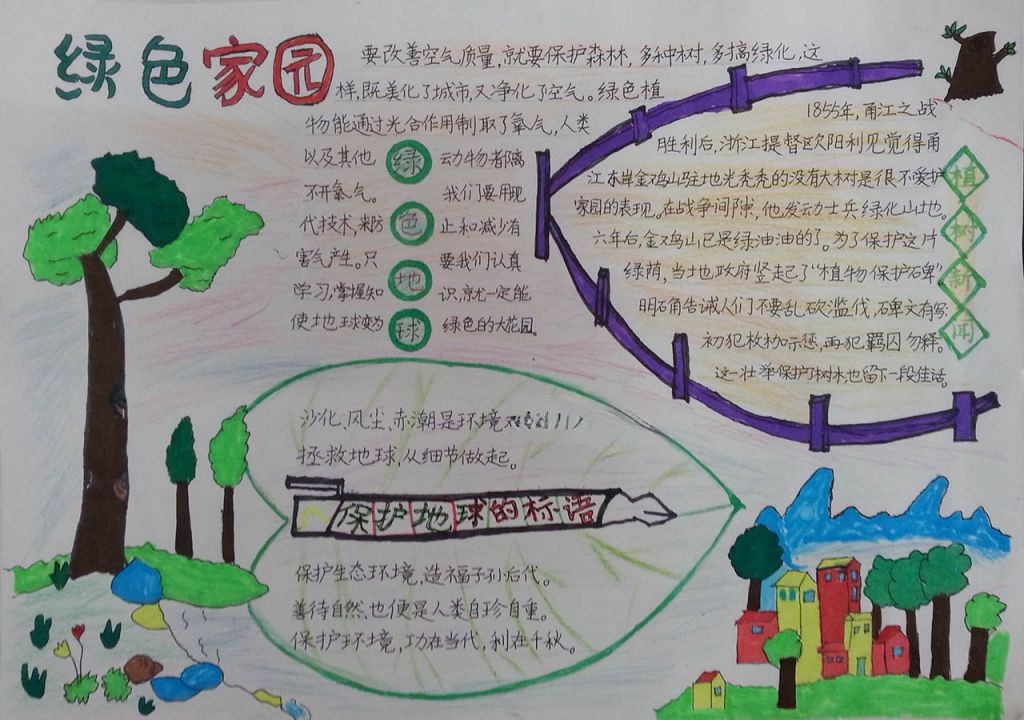 绿色家园
要改善空气质量,就要保护森林,多种树,多搞绿化,这
样,既美化了城市,又净化了空气。绿色植
物能通过光合作用制取了氧气,人类
以及其他 动物都离
不开氧气。 我们要用现
代技术,来防 止和减少有
害气产生。只 要我们认真
学习,掌握知 识,就一定能
使地球变为 绿色的大花园。
绿色地球
1855年,甬江之战
胜利后,浙江提督欧阳利见觉得甬
江东岸金鸡山驻地光秃秃的没有大树是很不爱护
家园的表现。在战争间隙,他发动士兵绿化山地。
六年后,金鸡山已是绿油油的了。为了保护这片
绿荫,当地政府竖起了“植物保护石碑”
明石角告诫人们不要乱砍滥伐,碑文有写:
初犯枚枷示惩,再犯羁囚勿释。
这一壮举保护了树木也留下一段佳话。
植树新闻
沙化、风尘、赤潮是环境
拯救地球,从细节做起。
保护地球的标语
保护生态环境,造福子孙后代。
善待自然也便是人类自珍自重。
保护环境,功在当代,利在千秋。